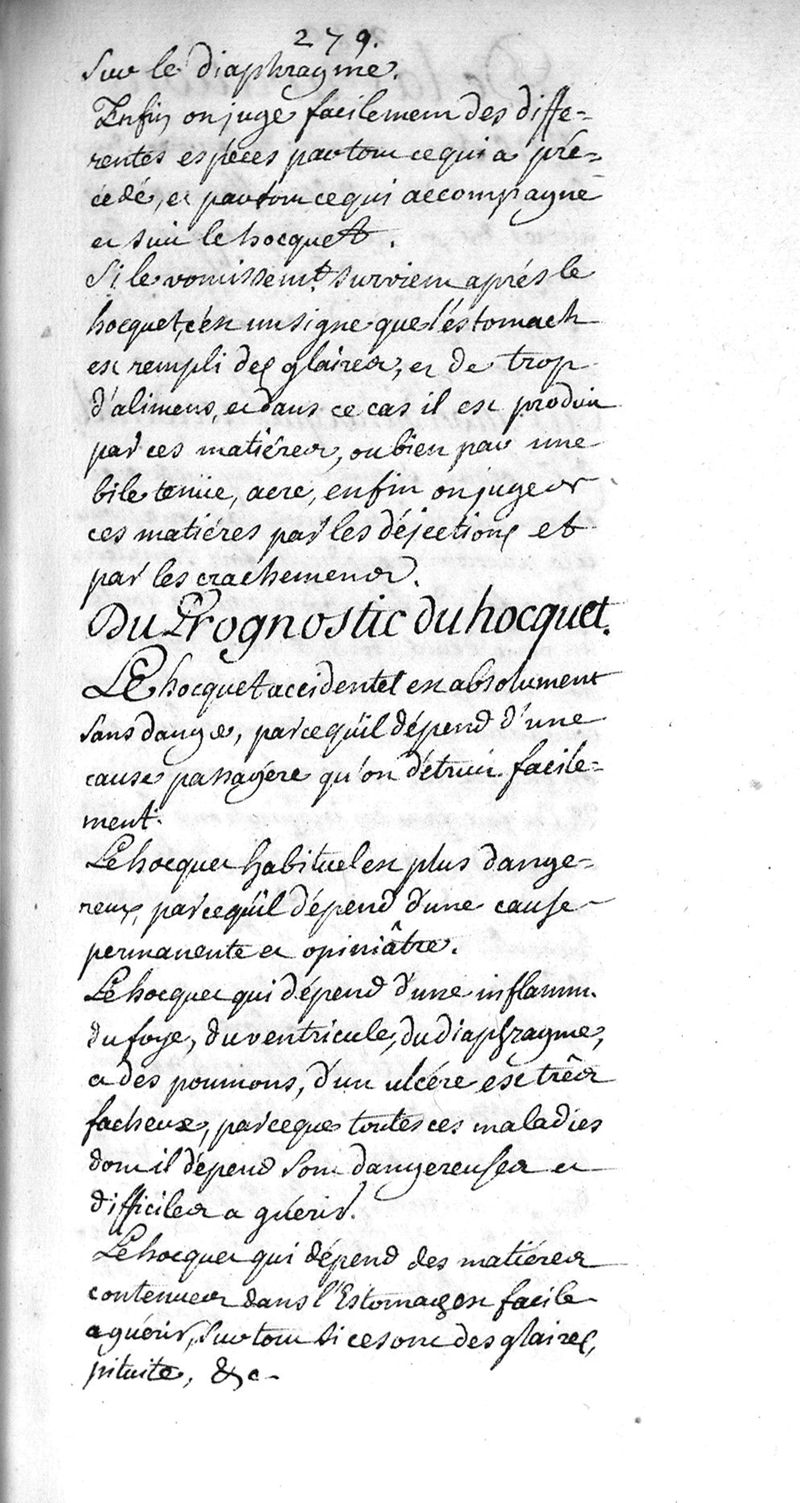 279.
sur le diaphragme.
Enfin on juge facilement des diffe=
rentes especes par tout ce qui a pré=
cedé, et par tout ce qui accompagne
et suit le hocquet.
Si le vomissemt. survient aprés le
hocquet, c'est un signe que l'éstomach
est rempli des glaires, et de trop
d'alimens, et dans ce cas il est produit
par ces matiéres, ou bien par une
bile tenüe, acre, enfin on juge
ces matiéres par les déjections et
par les crachements.
Du Prognostic du hocquet.
Le hocquet accidentel est absolument
sans danger, parcequ'il dépend d'une
cause passagere qu'on détruit facile=
ment.
Le hocquet habituel est plus dange=
reux, parcequ'il dépend d'une cause
permanente et opiniâtre.
Le hocquet qui dépend d'une inflamm.
du foye, du ventricule, du diaphragme,
et des poumons, d'un ulcére est trés
facheux, parceque toutes ces maladies
dont il dépend sont dangereuses et
difficiles a guérir.
Le hocquet qui dépend des matiéres
contenues dans l'Estomac est facile
a guérir, sur tout si ce sont des glaires,
pituite, &c-